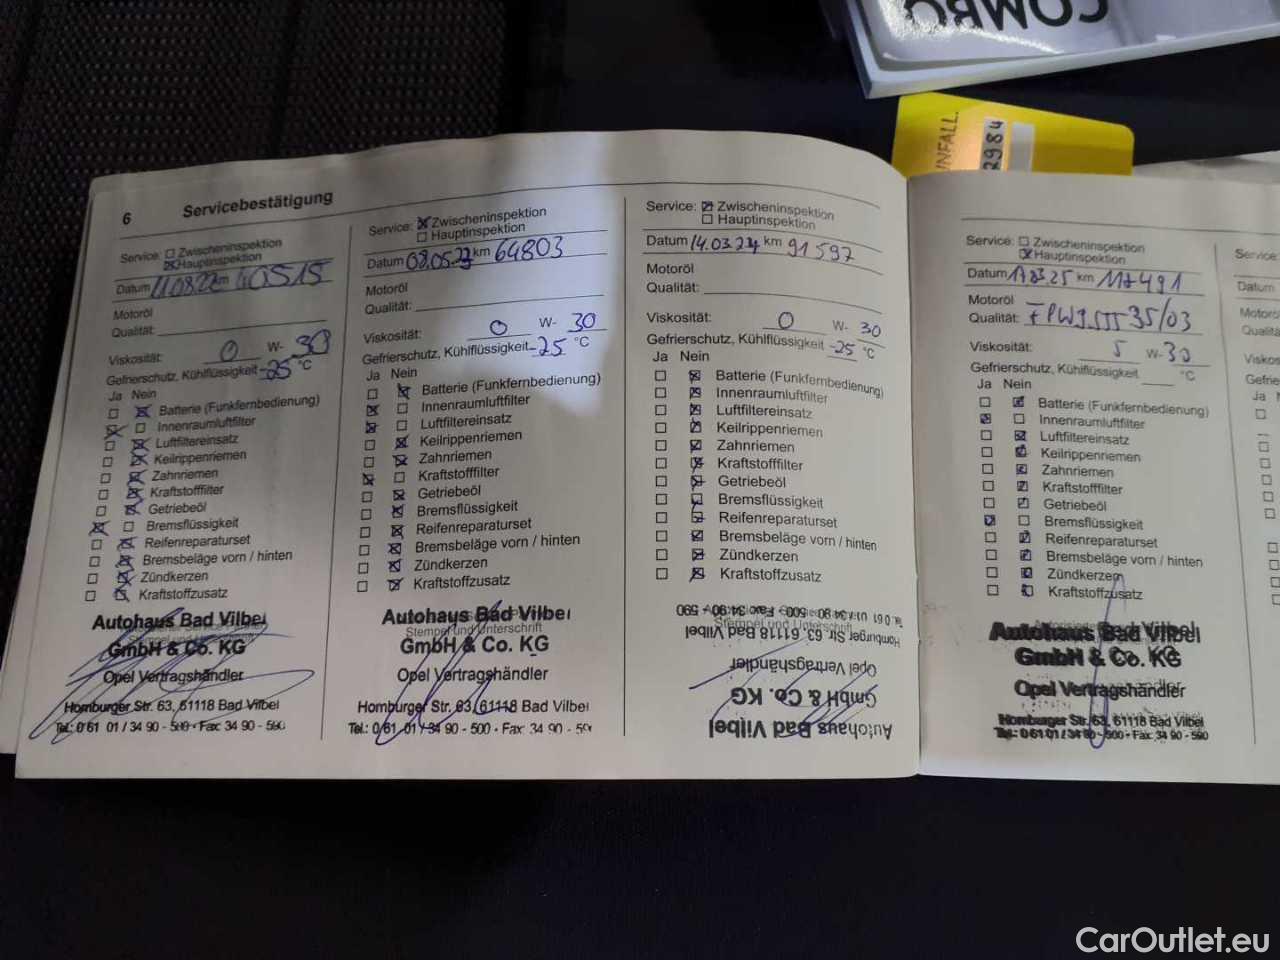 COMBO
UNFALL.
2984
6 Servicebestätigung
Service: Zwischeninspektion
Hauptinspektion
Datum 11.08.22 km 40515
Motoröl
Qualität:
Viskosität: 0 W- 30
Gefrierschutz, Kühlflüssigkeit -25 °C
Ja Nein
Batterie (Funkfernbedienung)
Innenraumluftfilter
Luftfiltereinsatz
Keilrippenriemen
Zahnriemen
Kraftstofffilter
Getriebeöl
Bremsflüssigkeit
Reifenreparaturset
Bremsbeläge vorn / hinten
Zündkerzen
Kraftstoffzusatz
Stempel und
Autohaus Bad Vilbel
GmbH & Co. KG
Opel Vertragshändler
Homburger Str. 63, 61118 Bad Vilbel
Tel.: 0 61 01 / 34 90 - 500 • Fax: 34 90 - 590
Service: Zwischeninspektion
Hauptinspektion
Datum 08.05.23 km 64803
Motoröl
Qualität:
Viskosität: 0 W- 30
Gefrierschutz, Kühlflüssigkeit -25 °C
Ja Nein
Batterie (Funkfernbedienung)
Innenraumluftfilter
Luftfiltereinsatz
Keilrippenriemen
Zahnriemen
Kraftstofffilter
Getriebeöl
Bremsflüssigkeit
Reifenreparaturset
Bremsbeläge vorn / hinten
Zündkerzen
Kraftstoffzusatz
Stempel und Unterschrift
Autohaus Bad Vilbel
GmbH & Co. KG
Opel Vertragshändler
Homburger Str. 63, 61118 Bad Vilbel
Tel.: 0 61 01 / 34 90 - 500 • Fax: 34 90 - 59
Service: Zwischeninspektion
Hauptinspektion
Datum 14.03.24 km 91597
Motoröl
Qualität:
Viskosität: 0 W- 30
Gefrierschutz, Kühlflüssigkeit -25 °C
Ja Nein
Batterie (Funkfernbedienung)
Innenraumluftfilter
Luftfiltereinsatz
Keilrippenriemen
Zahnriemen
Kraftstofffilter
Getriebeöl
Bremsflüssigkeit
Reifenreparaturset
Bremsbeläge vorn / hinten
Zündkerzen
Kraftstoffzusatz
Stempel und Unterschrift
Autohaus Bad Vilbel
GmbH & Co. KG
Opel Vertragshändler
Homburger Str. 63, 61118 Bad Vilbel
Tel. 0 61 01 / 34 90 - 500 • Fax: 34 90 - 590
Service: Zwischeninspektion
Hauptinspektion
Datum 17.03.25 km 117491
Motoröl
Qualität: 35/03
Viskosität: 5 W- 30
Gefrierschutz, Kühlflüssigkeit °C
Ja Nein
Batterie (Funkfernbedienung)
Innenraumluftfilter
Luftfiltereinsatz
Keilrippenriemen
Zahnriemen
Kraftstofffilter
Getriebeöl
Bremsflüssigkeit
Reifenreparaturset
Bremsbeläge vorn / hinten
Zündkerzen
Kraftstoffzusatz
Autohaus Bad Vilbel
GmbH & Co. KG
Opel Vertragshändler
Homburger Str. 63, 61118 Bad Vilbel
Tel.: 0 61 01 / 34 90 - 500 • Fax: 34 90 - 590
Service:
Datum
Ja
CarOutlet.eu